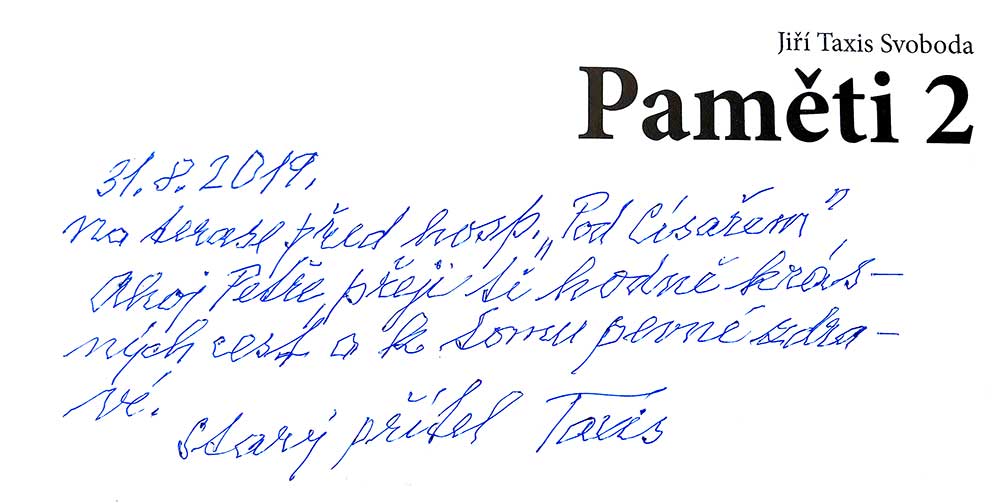 Jiří Taxis Svoboda
Paměti 2
31.8.2019.
na terase před hosp. „Pod Císařem"
Ahoj Petře, přeji ti hodně krás-
ných cest a k tomu pevné zdra-
ví.
starý přítel Taxis